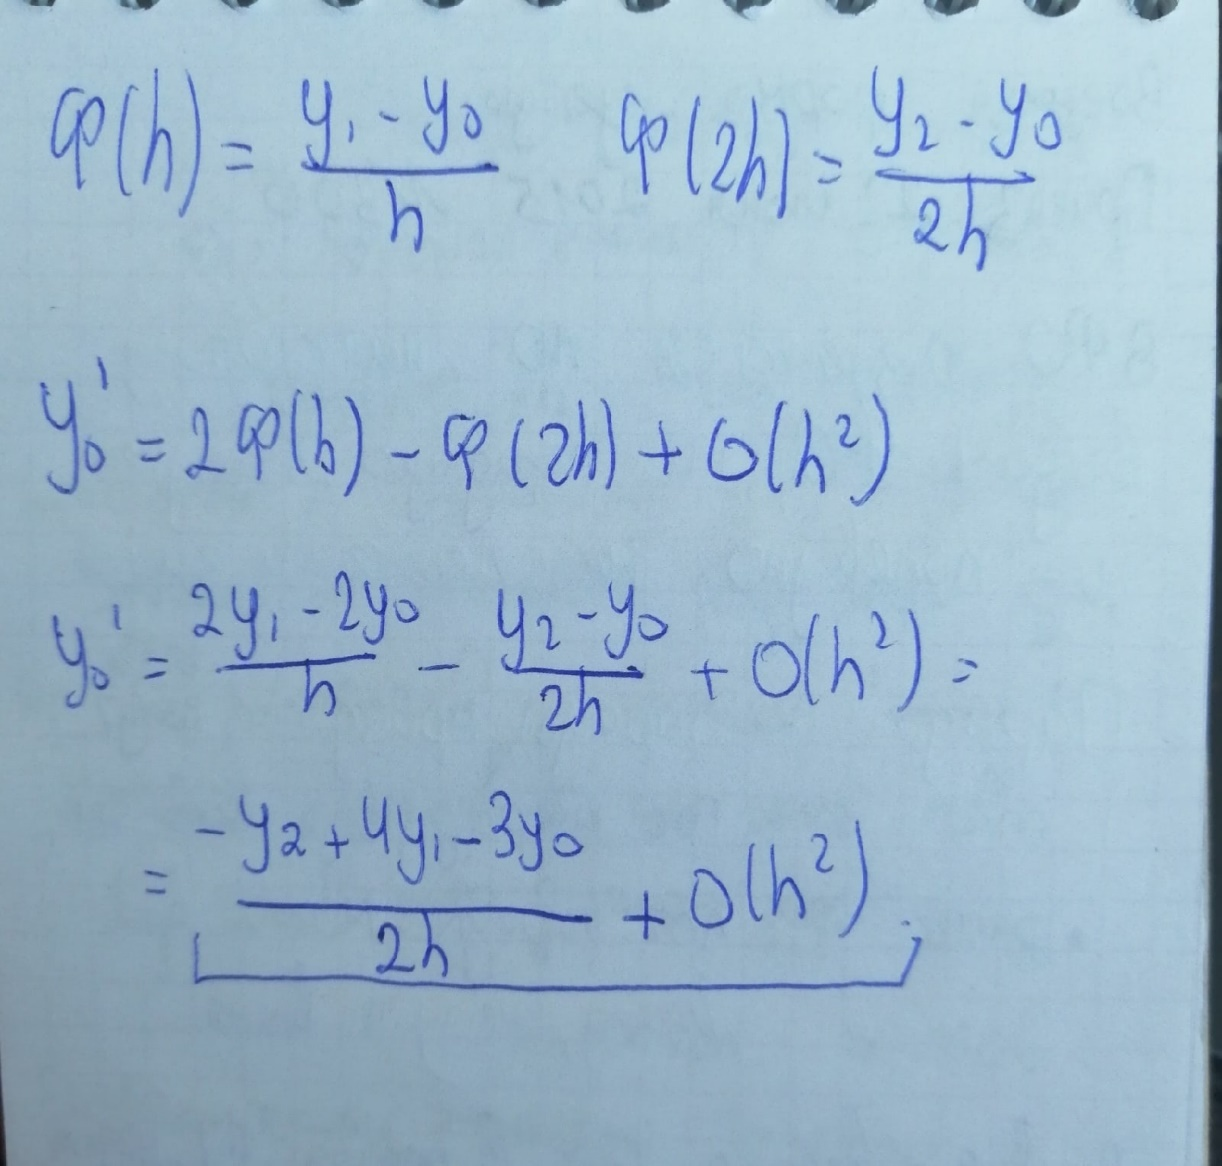 φ(h) = (y₁ - y₀)/h φ(2h) = (y₂ - y₀)/2h
y₀' = 2φ(h) - φ(2h) + O(h²)
y₀' = (2y₁ - 2y₀)/h - (y₂ - y₀)/2h + O(h²) =
= (-y₂ + 4y₁ - 3y₀)/2h + O(h²).